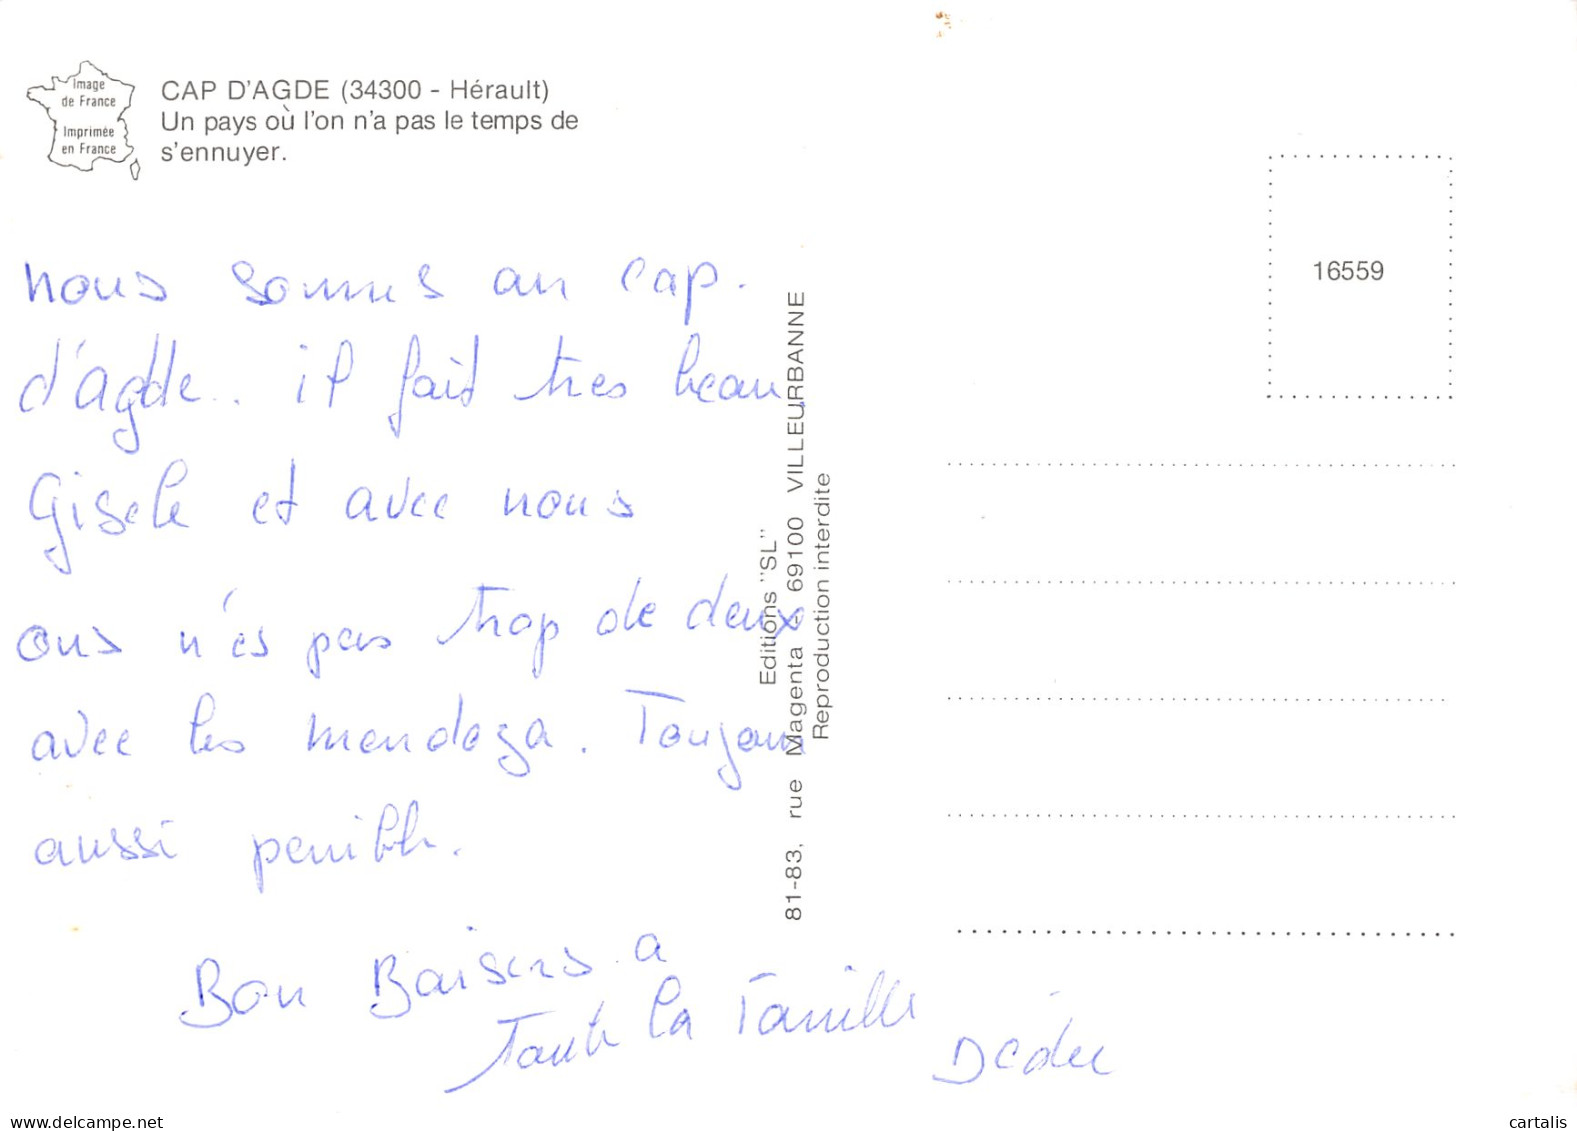 Image
de France
Imprimée
en France
CAP D'AGDE (34300 - Hérault)
Un pays où l'on n'a pas le temps de
s'ennuyer.
16559
nous sommes au cap.
d'agde.. il fait tres beau,
Gisele et avec nous
ons n'es pas trop de deux
avec les mendoza. Toujours
aussi penible.
Bon Baisers a
Toute la Famille
Dédée
Editions "SL"
81-83, rue Magenta 69100 VILLEURBANNE
Reproduction interdite
cartalis